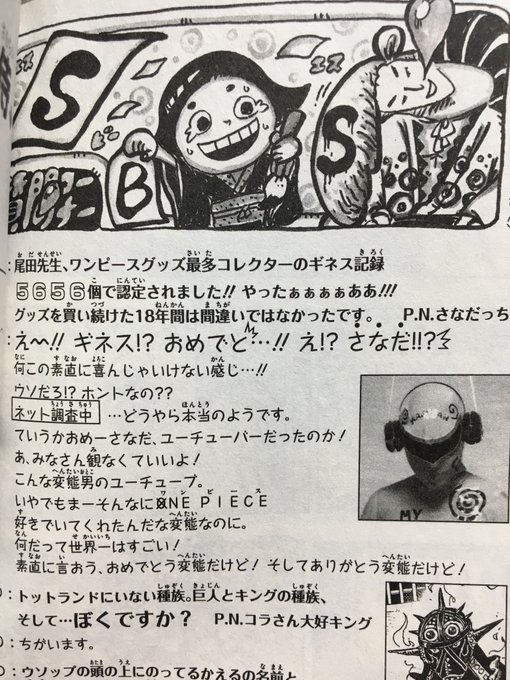 S
B
S
尾田先生、ワンピースグッズ最多コレクターのギネス記録
5656個で認定されました!! やったぁぁぁぁああ!!!
グッズを買い続けた18年間は間違いではなかったです。 P.N.さなだっち
え〜!! ギネス!? おめでと…!! え!? さなだ!!?
何この素直に喜んじゃいけない感じ…!!
ウソだろ!? ホントなの??
ネット調査中 …どうやら本当のようです。
ていうかおめーさなだ、ユーチューバーだったのか!
あ、みなさん観なくていいよ!
こんな変態男のユーチューブ。
いやでもまーそんなにONE PIECE
好きでいてくれたんだな変態なのに。
何だって世界一はすごい!
素直に言おう、おめでとう変態だけど! そしてありがとう変態だけど!
MY
トットランドにいない種族。巨人とキングの種族、
そして…ぼくですか? P.N.コラさん大好きキング
ちがいます。
:ウソップの頭の上にのってるかえるの名前と